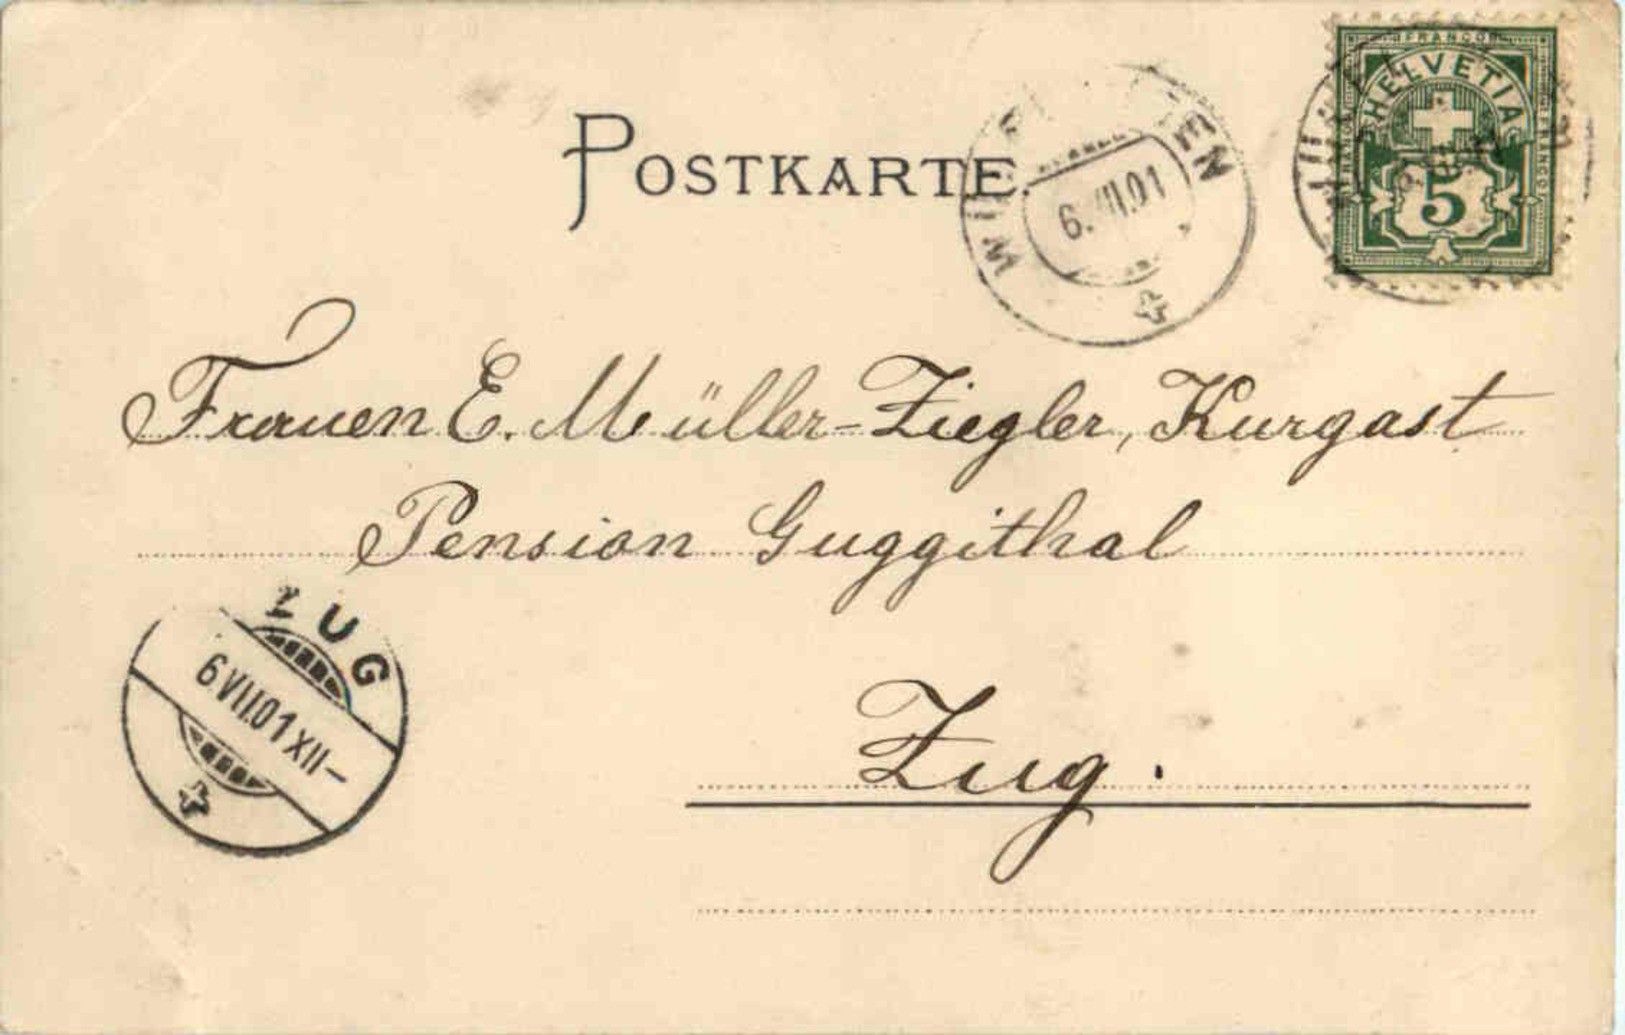 POSTKARTE.
6. VII.01
FRANCO
HELVETIA
FRANCO
5
Frauen E. Müller-Ziegler, Kurgast
Pension Guggithal
ZUG
6 VII.01 XII–
Zug.